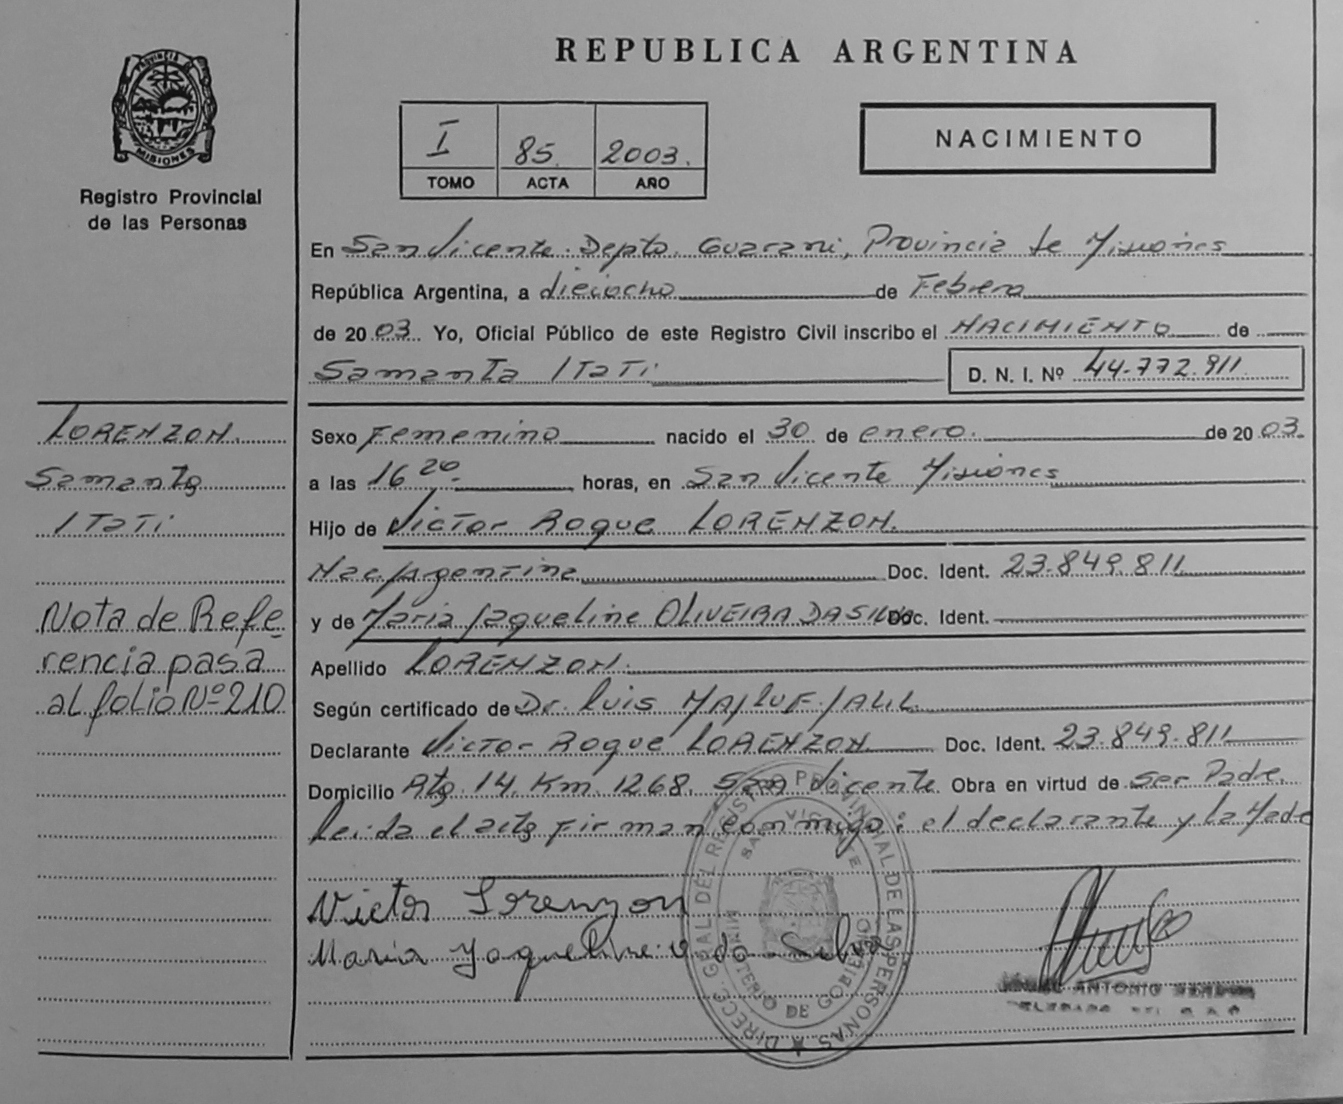 REPUBLICA ARGENTINA
PROVINCIA DE MISIONES
Registro Provincial
de las Personas
I 85. 2003.
TOMO ACTA AÑO
NACIMIENTO
En San Vicente. Depto. Guarani, Provincia de Misiones
República Argentina, a dieciocho de Febrero
de 2003. Yo, Oficial Público de este Registro Civil inscribo el NACIMIENTO de
Samanta Itati D. N. I. Nº 44-772.911
LORENZON.
Samanta
Itati
Nota de Refe-
rencia pasa
al folio Nº 210
Sexo Femenino nacido el 30 de enero. de 2003.
a las 16 20 horas, en San Vicente Misiones
Hijo de Victor Roque LORENZON.
Nac. Argentina Doc. Ident. 23.849.811
y de Maria Jaqueline OLIVEIRA DA SILVA Doc. Ident.
Apellido LORENZON.
Según certificado de Dr. Luis
Declarante Victor Roque LORENZON Doc. Ident. 23.849.811
Domicilio Rta. 14. Km. 1268. San Vicente. Obra en virtud de ser Padre.
Leida el acta firman conmigo: el declarante y la Madre
Victor Lorenzon
Maria Jaqueline o da Silva
DIRECC. GRAL DEL REGISTRO PROVINCIAL DE LAS PERSONAS
SAN VICENTE
MINISTERIO DE GOBIERNO
ANTONIO